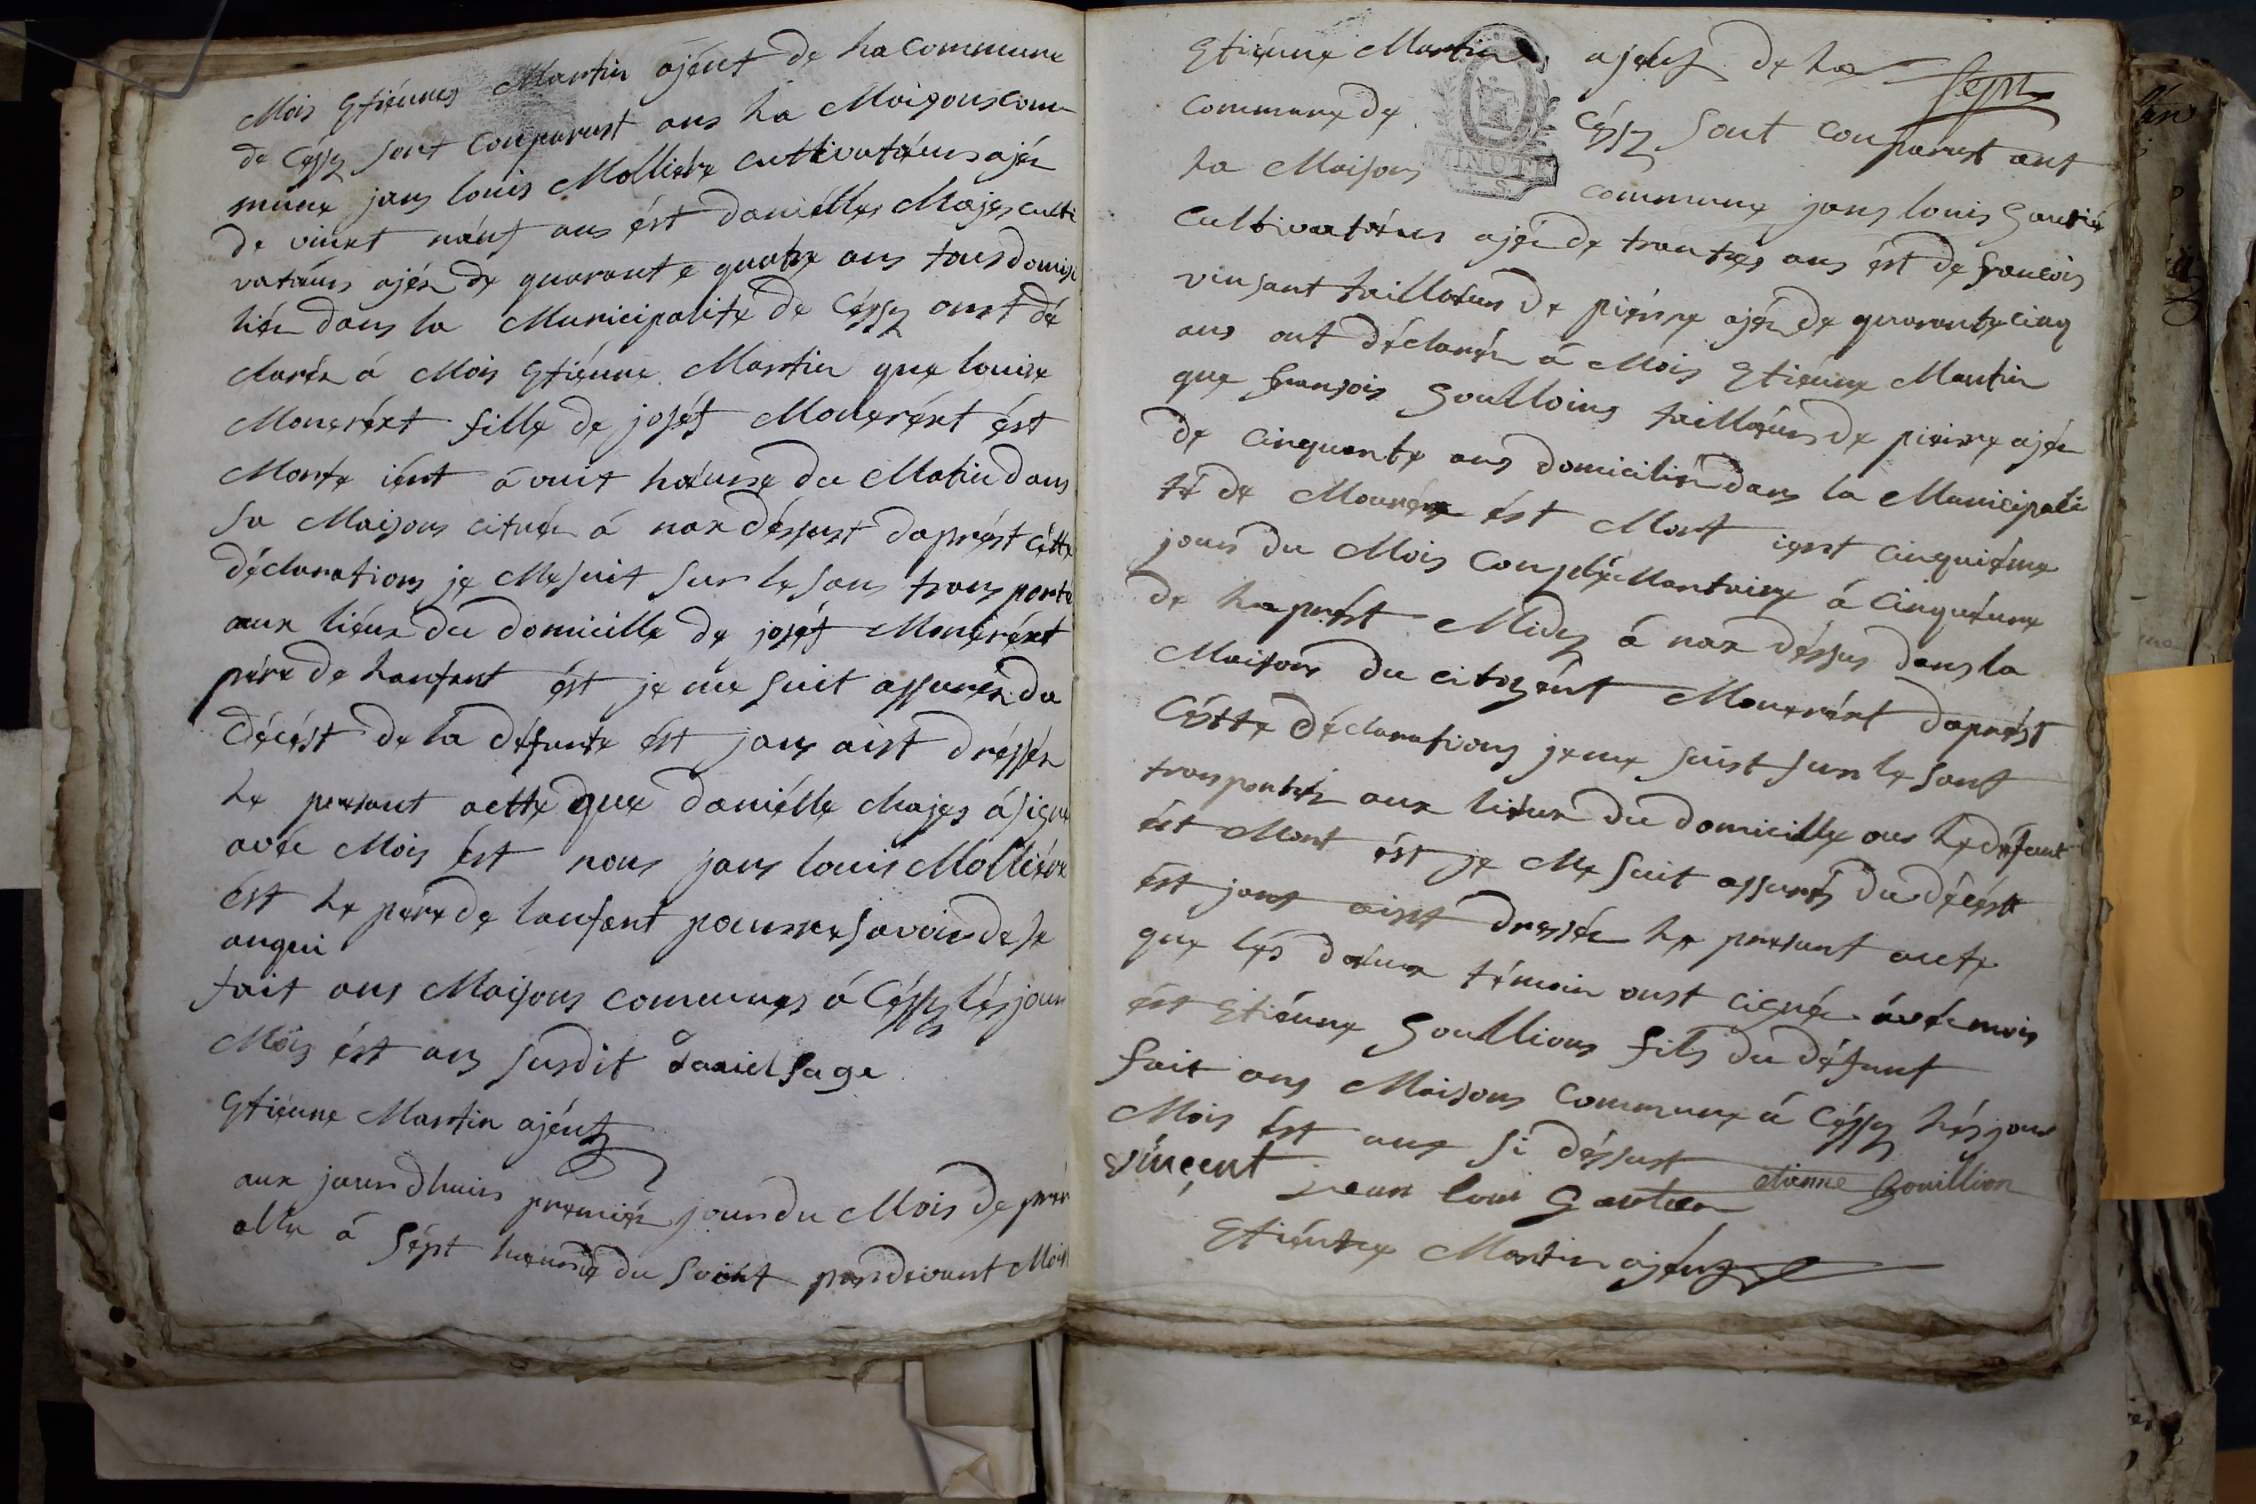 Mois Etiénnes Martin ajént de ha commune
de Céssy sont conparust ans ha Moisons com
mune jans louis Mollière cultivatéurs ajéz
de vinct néuf ans ést daniélles Majes culti
vatéurs ajéz de quarante quatre ans tous domisi
liéz dans la Municipalite de Céssy onst dé
claréz á Mois Etiénne Martin que louise
Monerért fille de joséf Monerért ést
Morte iért á vuit héurse du Matin dans
sa Maisons cituéz á nax déssust daprést cétte
déclarations je Mesuit sur le sans trans porté
aux liéux du domicille de joséf Monérért
pére de hanfant ést je me suit assuréz du
décést de la défunte ést jans aist drésséz
he presant acette que daniélle Majes ásigné
avéc Mois ést nous jans louis Molliére
ést he pere de lanfant pour ne savoir dese
anqui
fait ans Maisons communes á Céssy lés jour
Mois ést ans susdit daniel sage
Etiénne Martin ajént
aux jourdhuis premiér jour du Mois de prér
alle á sépt heurse du soint pardevant Mois
Etiénne Martin ajént de ha
sept
commune de Céssy sont conparust ant
ha Maisons commune jans louis Gautié
cultivatéurs ajéz de trantres ans ést de francois
vinsant tailleurs de piérre ajéz de quarante cinq
ans ont déclaréz á Mois Etiénne Martin
que fransois Goulloins tailléurs de piérre ajéz
de cinquante ans domiciliéz dans la Municipali
té de Mouréx ést Mort iert cinquiéme
jours du Mois ConpléMantaire á cinquéure
de haprést Midy á nax déssus dans la
Maisons du citoyént Monerért daprést
Céstte déclarations jeme suist sur le sant
transportéz aux liéux du domicille ous he défunt
ést Mort ést je Me suit assuréz du décést
ést jant aist dresséz he presant acte
que lés déux témoin onst cignéz avéc mois
ést Etiénne Goullions fils du défunt
fait ans Maisons commune á Céssy hés jour
Mois ést ans si déssust etienne Gouillion
vincent jean loui Gautier
Etiénne Martin ajént
MINUTE